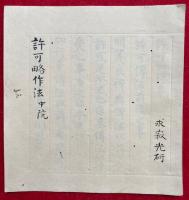 許可略作法中院
求寂光研